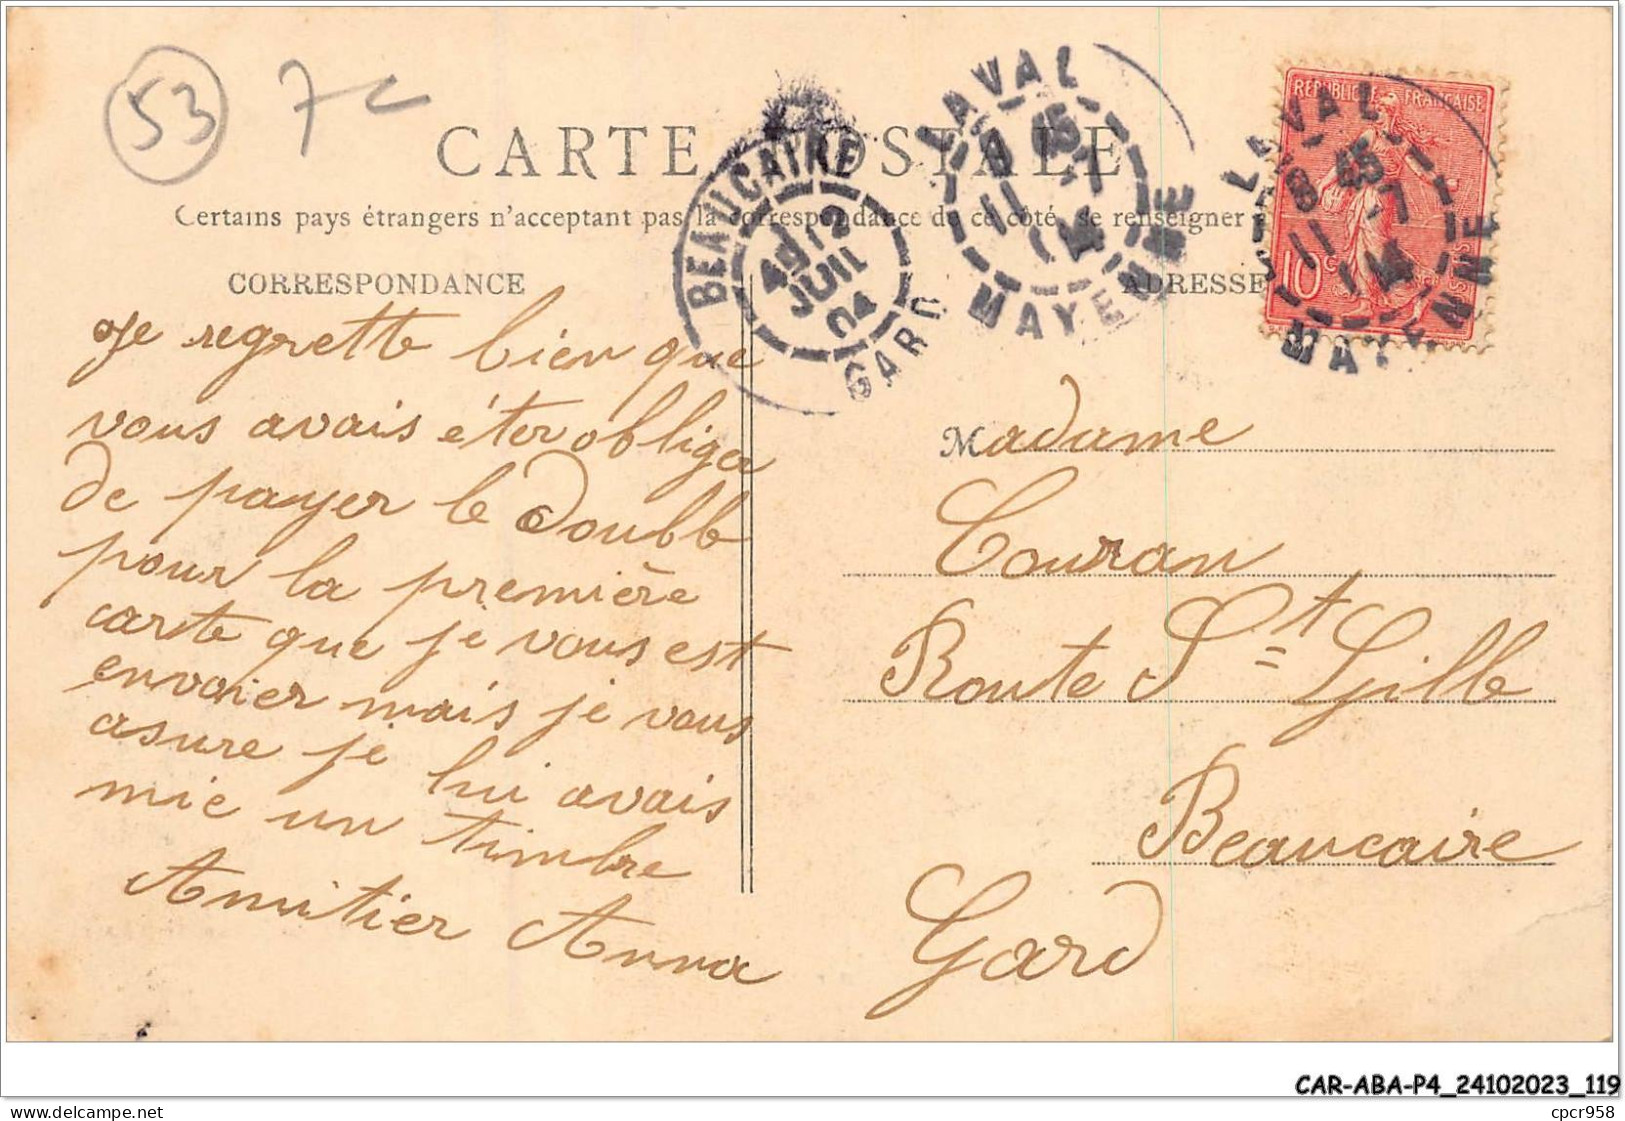 53 7c
CARTE POSTALE
Certains pays étrangers n'acceptant pas la correspondance de ce côté, se renseigner
CORRESPONDANCE
ADRESSE
BEAUCAIRE
12
JUIL
04
GARD
LAVAL
8 45
11 -7
04
MAYENNE
REPUBLIQUE FRANÇAISE
10c
POSTES
LAVAL
8 45
11 -7
MAYENNE
Je regrette bien que
vous avais éter obliger
de payer le double
pour la première
carte que je vous est
envoier mais je vous
asure je lui avais
mie un timbre
Amitier Anna
Madame
Couran
Route St Gille
Beaucaire
Gard
CAR-ABA-P4_24102023_119
cpcr958